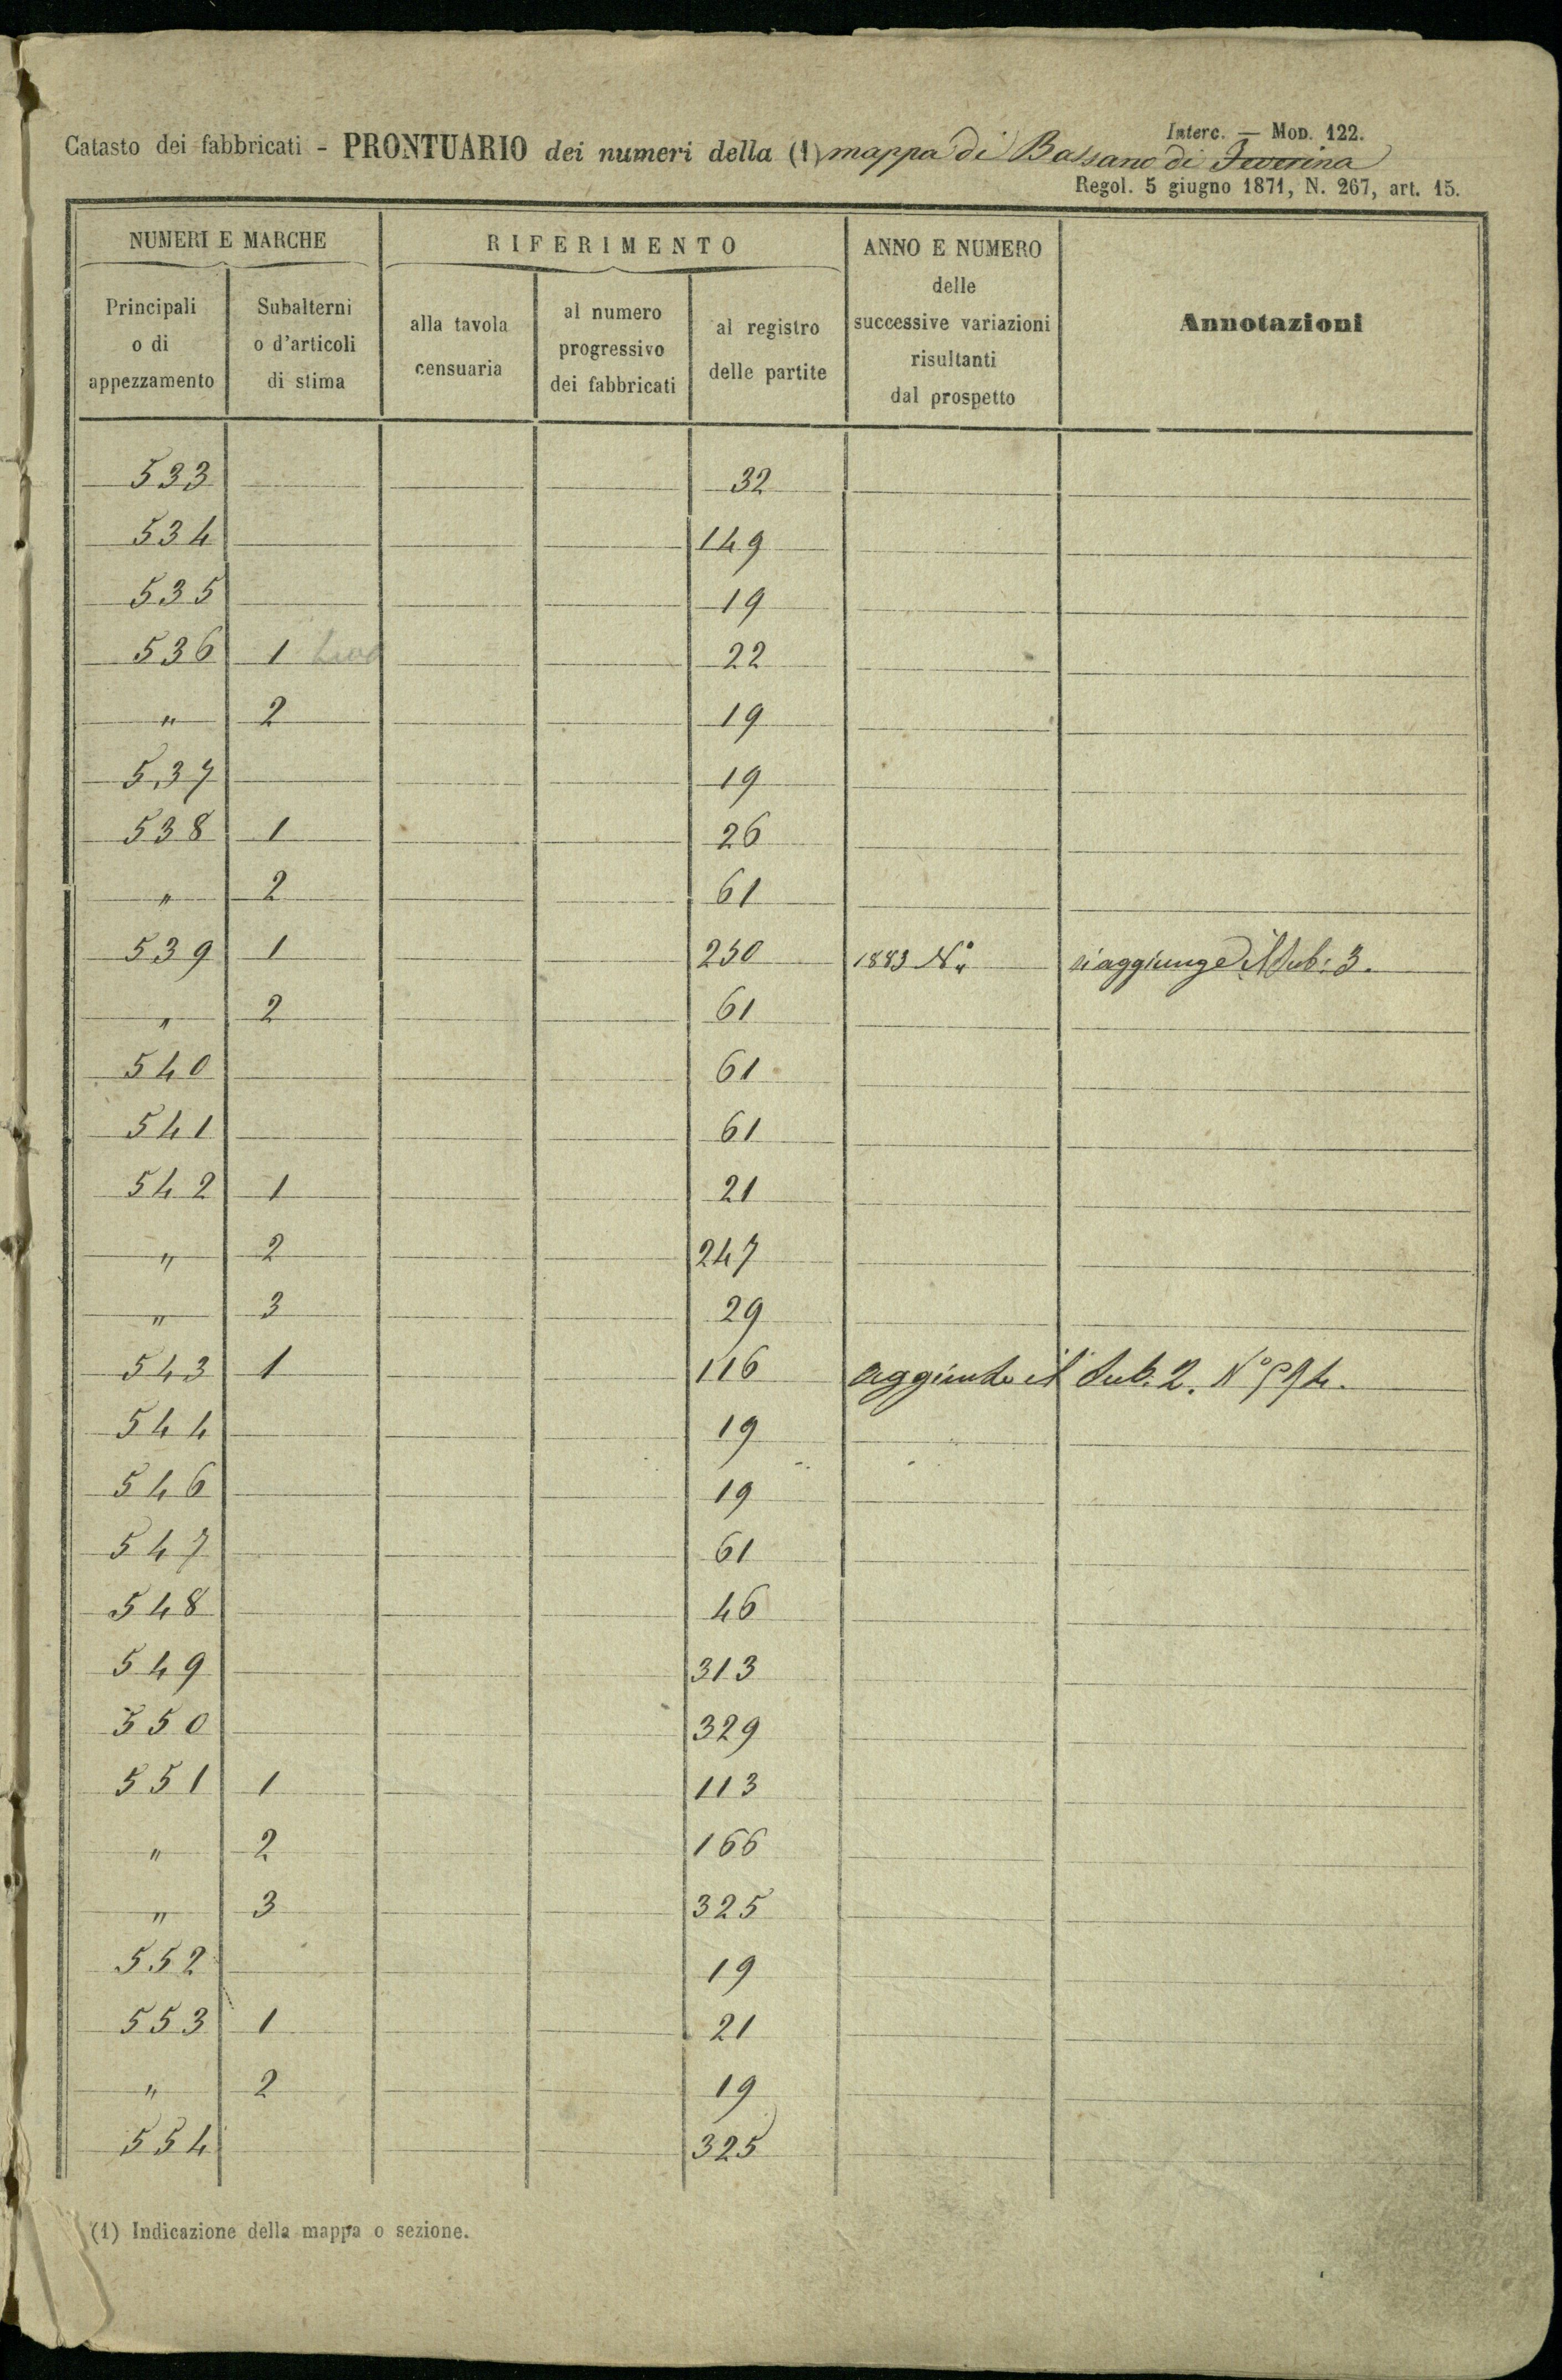 Interc. — Mod. 122.
Catasto dei fabbricati - PRONTUARIO dei numeri della (1) mappa di Bassano di Teverina
Regol. 5 giugno 1871, N. 267, art. 15.
NUMERI E MARCHE
RIFERIMENTO
ANNO E NUMERO
delle
successive variazioni
risultanti
dal prospetto
Annotazioni
Principali
o di
appezzamento
Subalterni
o d'articoli
di stima
alla tavola
censuaria
al numero
progressivo
dei fabbricati
al registro
delle partite
533 32
534 149
535 19
536 1 22
" 2 19
537 19
538 1 26
" 2 61
539 1 250 1883 N° si aggiunge il Sub: 3.
" 2 61
540 61
541 61
542 1 21
" 2 247
" 3 29
543 1 116 aggiunto il Sub. 2. N°
544 19
546 19
547 61
548 46
549 313
550 329
551 1 113
" 2 166
" 3 325
552 19
553 1 21
" 2 19
554 325
(1) Indicazione della mappa o sezione.